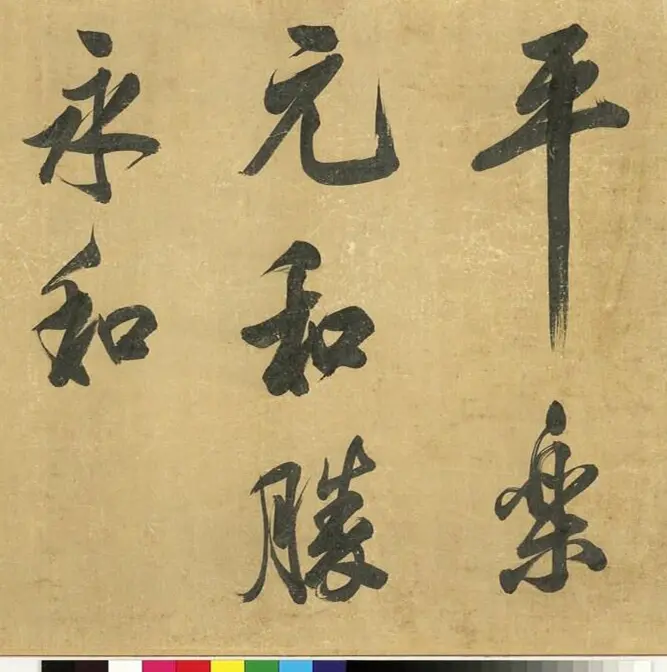 平樂
元和勝
永和